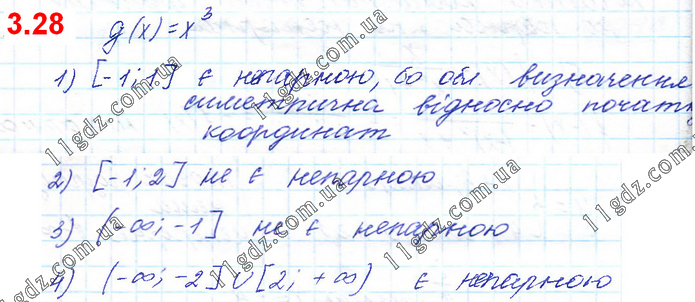 3.28
g(x)=x³
1) [-1;1] є непарною, бо обл. визначення
симетрична відносно почат
координат
2) [-1;2] не є непарною
3) (-∞;-1] не є непарною
4) (-∞;-2]∪[2;+∞) є непарною
11gdz.com.ua
11gdz.com.ua
11gdz.com.ua
11gdz.com.ua
11gdz.com.ua
11gdz.com.ua